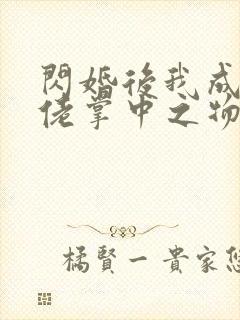 閃婚後我成
佬掌中之物
橘賢一 貴家悠